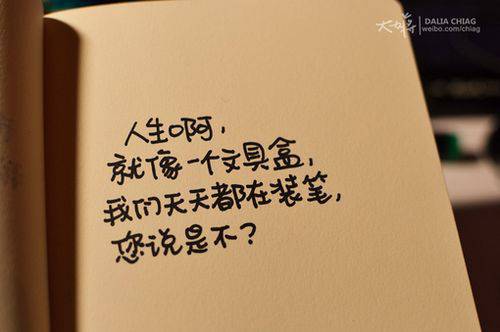 大好蒋
DALIA CHIAG
weibo.com/chiag
人生啊，
就像一个文具盒，
我们天天都在装笔，
您说是不？